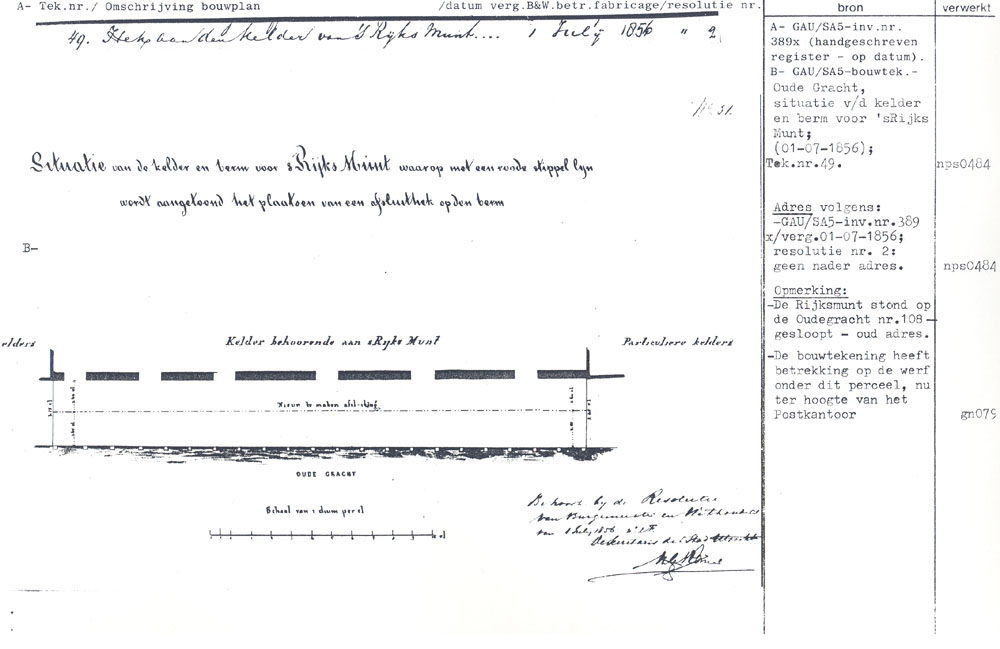 A- Tek.nr./ Omschrijving bouwplan /datum verg.B&W.betr.fabricage/resolutie nr.
bron
verwerkt
49. Hek aan den kelder van 's Rijks Munt.... 1 July 1856 " 2
No 31.
Situatie van de kelder en berm voor 's Rijks Munt waarop met een roode stippel lyn
wordt aangetoond het plaatsen van een afsluithek op den berm
B-
elders
Kelder behoorende aan 's Rijks Munt
Particuliere kelders
Nieuw te maken afsluiting
OUDE GRACHT
Schaal van 1 duim per el
Behoort bij de Resolutie
van Burgemeester en Wethouders
van 1 July 1856 No 2
De Secretaris der Stad Utrecht
A- GAU/SA5-inv.nr.
389x (handgeschreven
register - op datum).
B- GAU/SA5-bouwtek.-
Oude Gracht,
situatie v/d kelder
en berm voor 'sRijks
Munt;
(01-07-1856);
Tek.nr.49.
nps0484
Adres volgens:
-GAU/SA5-inv.nr.389
x/verg.01-07-1856;
resolutie nr. 2:
geen nader adres.
nps0484
Opmerking:
-De Rijksmunt stond op
de Oudegracht nr.108 -
gesloopt - oud adres.
-De bouwtekening heeft
betrekking op de werf
onder dit perceel, nu
ter hoogte van het
Postkantoor
gn079